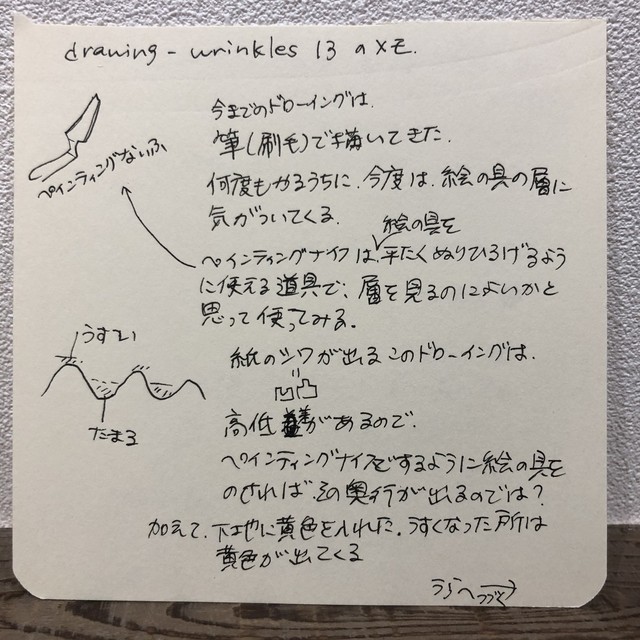 drawing - wrinkles 13 のメモ.
ペインティングないふ
今までのドローイングは、
筆(刷毛)で描いてきた.
何度もやるうちに、今度は、絵の具の層に
気がついてくる.
絵の具を
ペインティングナイフは、平たくぬりひろげるよう
に使える道具で、層を見るのによいかと
思って使ってみる.
うすい
たまる
紙のシワが出るこのドローイングは.
凹凸
高低差があるので.
ペインティングナイフをするように絵の具を
のせれば、その奥行が出るのでは?
加えて、下地に黄色を入れた. うすくなった所は
黄色が出てくる
うらへつづく